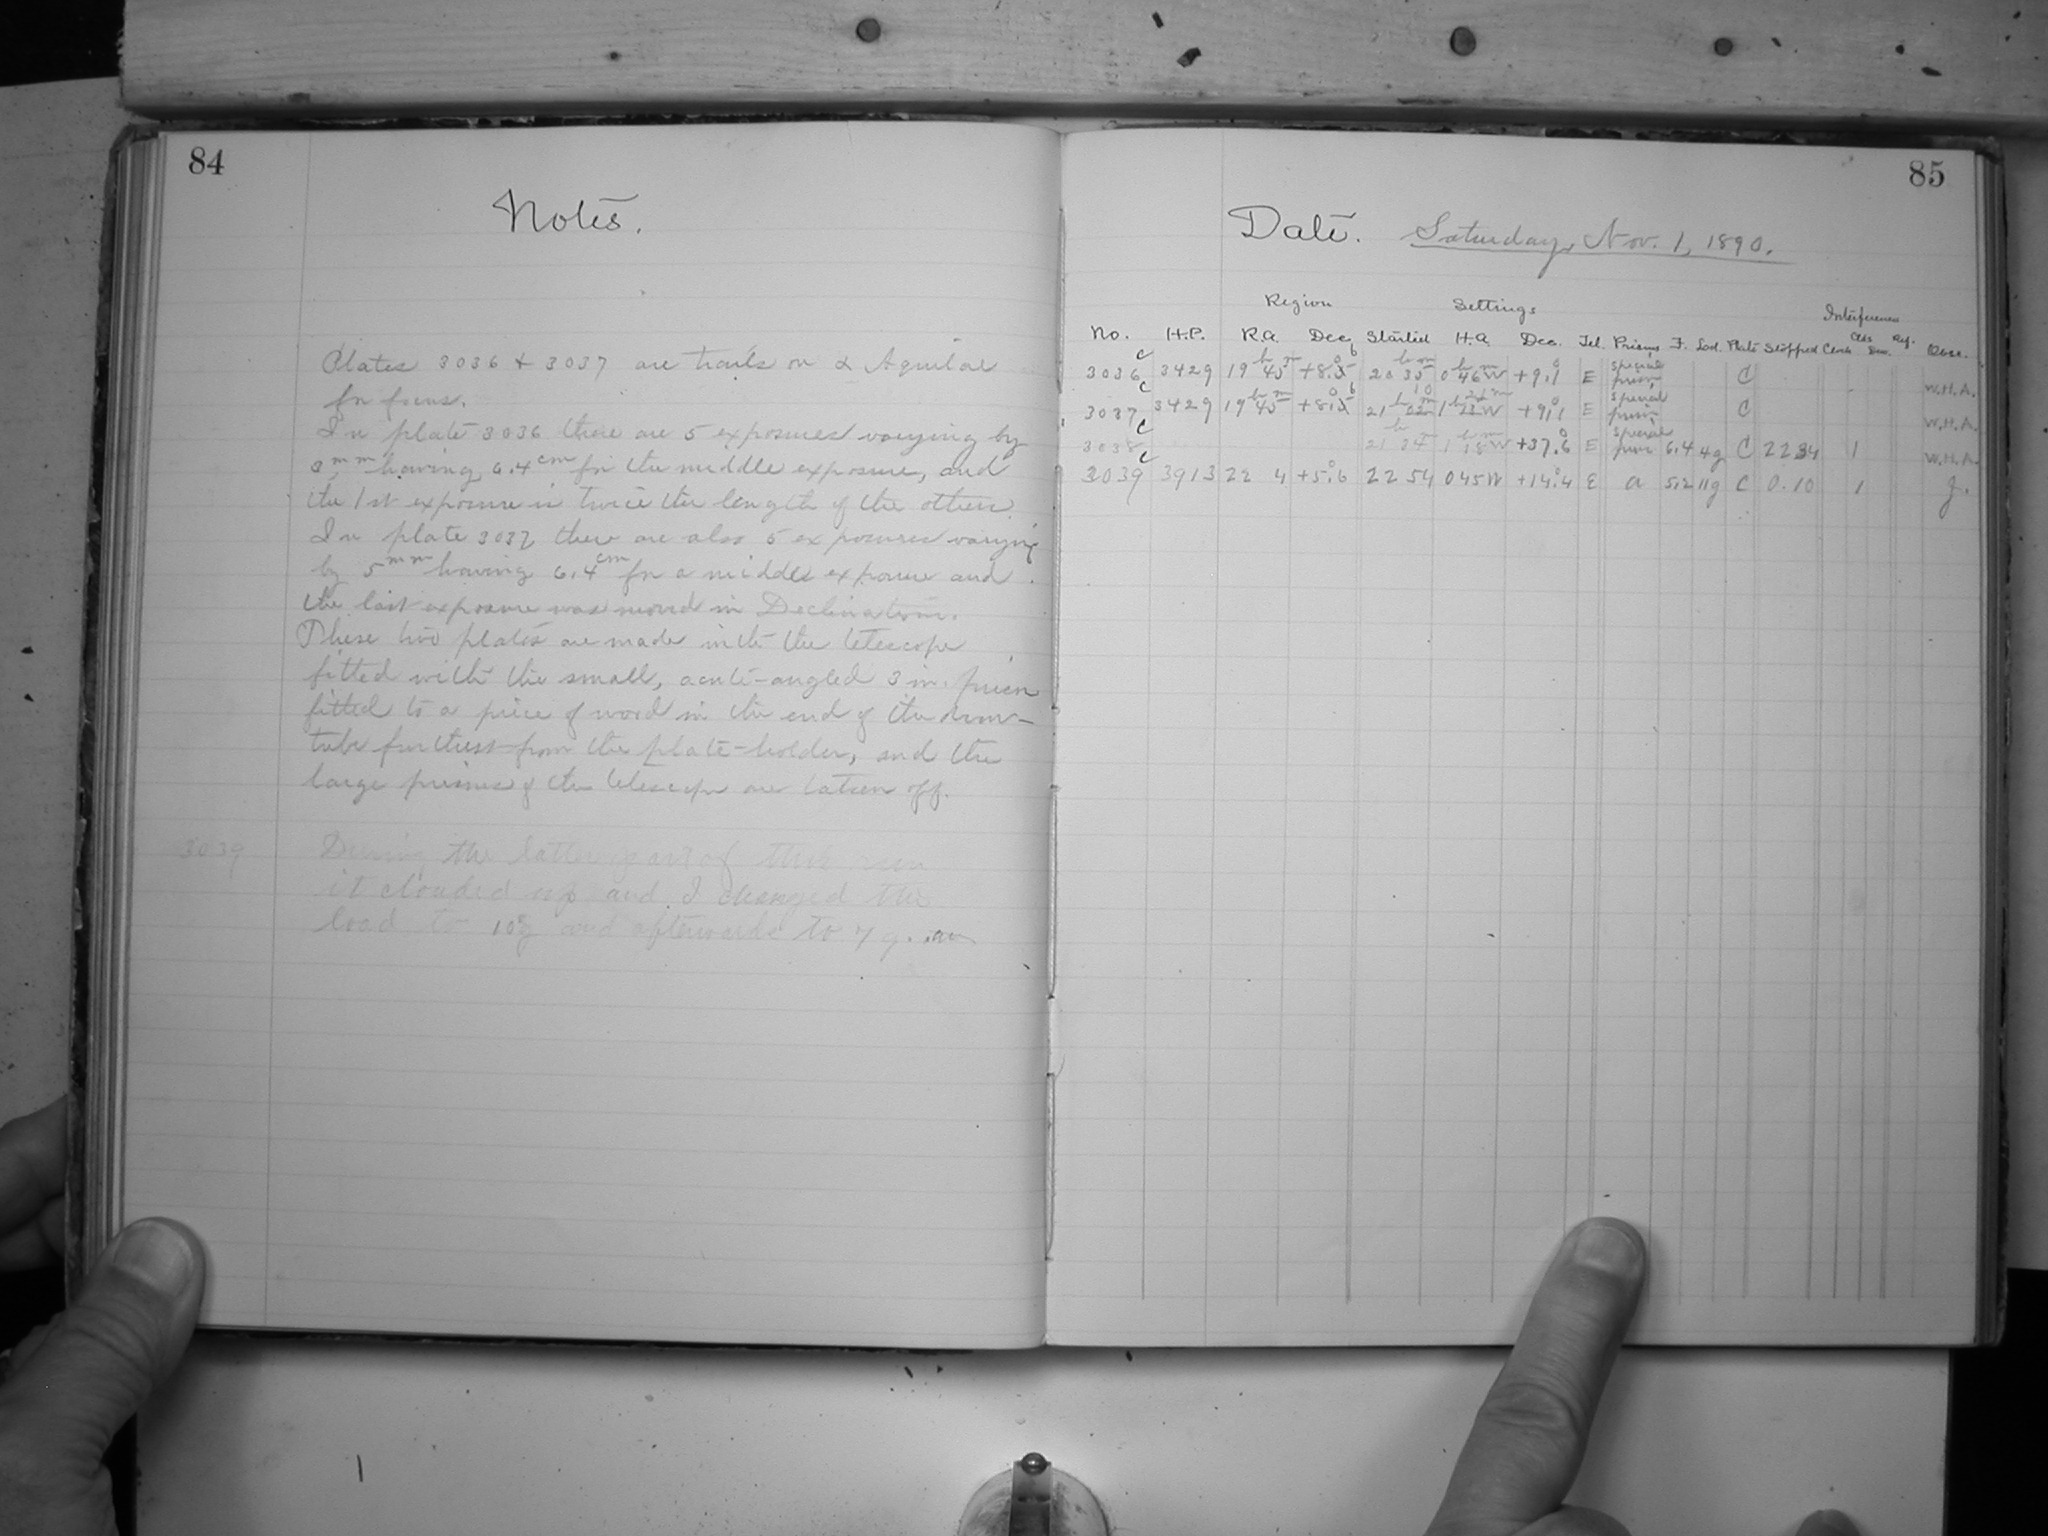 84
Notes.
Plates 3036 & 3037 are trails on α Aquilae
for focus.
In plate 3036 there are 5 exposures varying by
3mm having 6.4cm for the middle exposure, and
the 1st exposure is twice the length of the others.
In plate 3037 there are also 5 exposures varying
by 5mm having 6.4cm for a middle exposure and
the last exposure was moved in Declination.
These two plates are made with the telescope
fitted with the small, acute-angled 3 in. prism
fitted to a piece of wood in the end of the draw-
tube furthest from the plate-holder, and the
large prisms of the telescope are taken off.
3039 During the latter part of this run
it clouded up and I changed the
load to 10g and afterwards to 7g.
85
Date. Saturday, Nov. 1, 1890.
Region Settings Interference
No. H.P. R.A. Dec. Started H.A. Dec. Tel. Prisms F. Lod. Plate Stopped Clock Obs. Dec. Ref. Obsr.
3036 C 3429 19h 45m +8.°6 20h 35m 0h 46m W +9.°1 E special prism C W.H.A.
3037 C 3429 19h 45m +8.°6 21h 1h W +9.°1 E special prism C W.H.A.
3038 C 21h 34m 1h 18m W +37.°6 E special prism 6.4 4g C 22 34 1 W.H.A.
3039 C 3913 22 4 +5.°6 22 54 0 45 W +14.°4 E a 5.2 11g C 0.10 1 J.